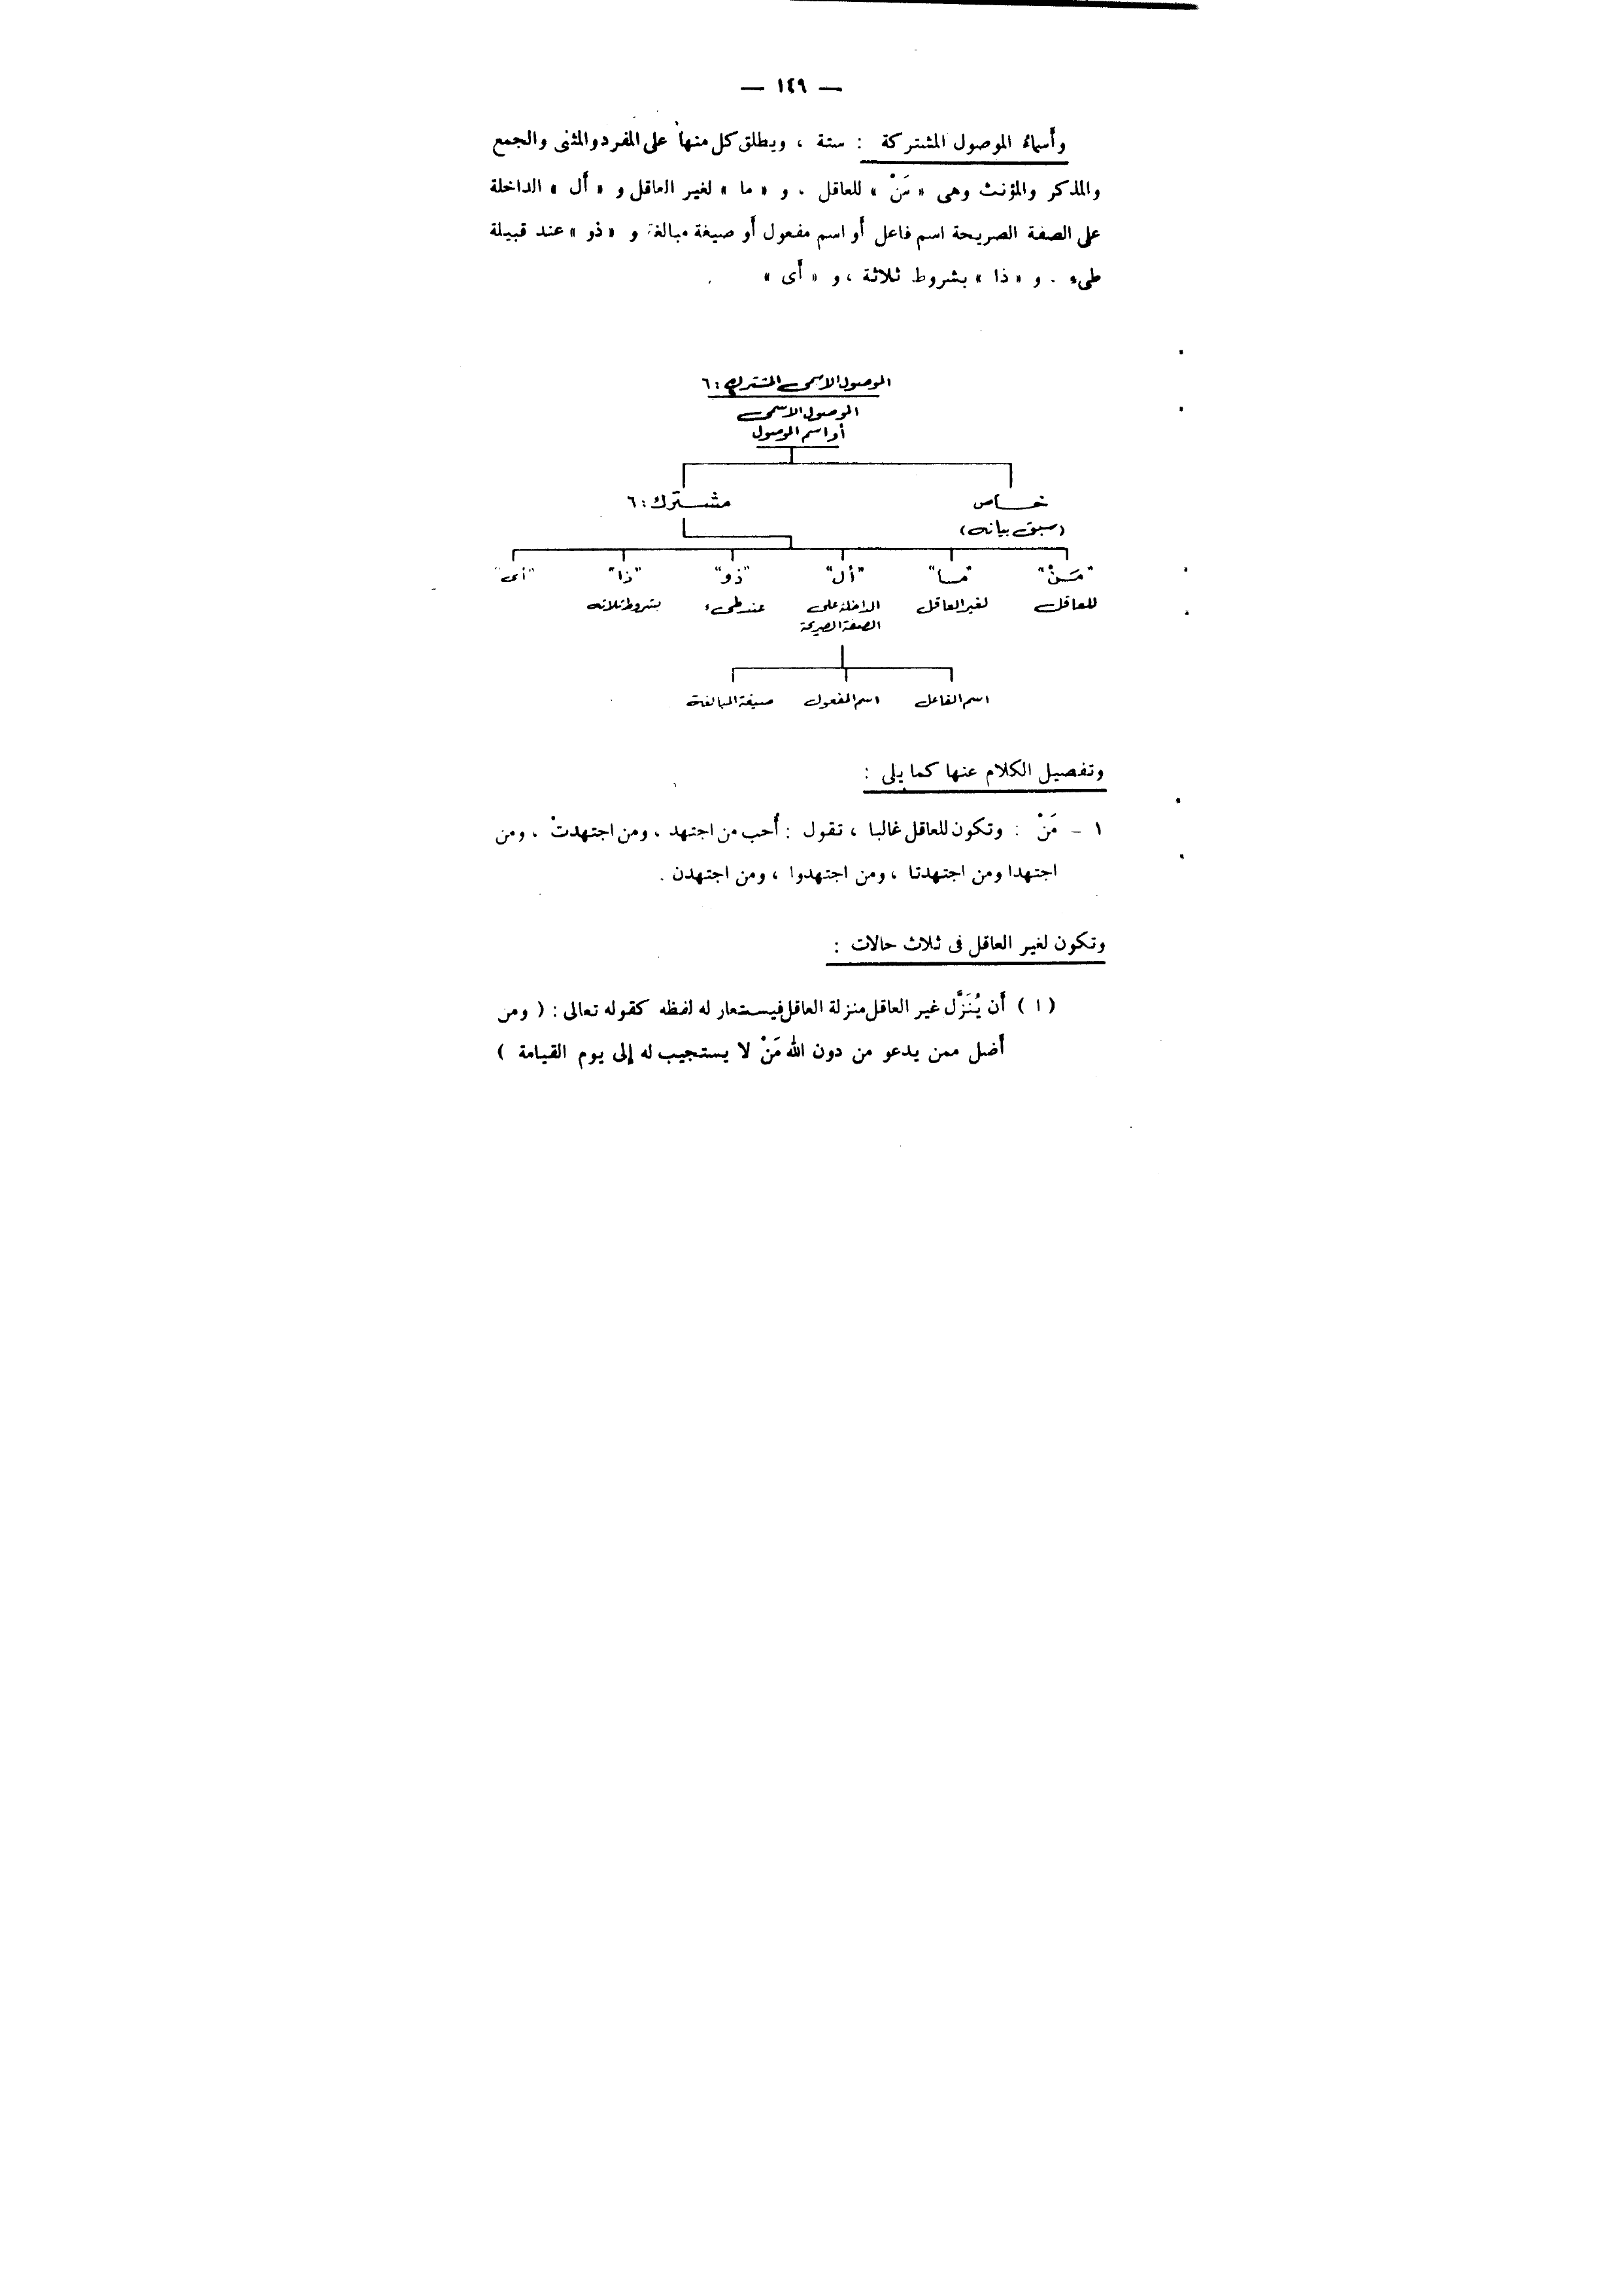 — ١٤٩ —
وأسماءُ الموصول المشتركة : ستة ، ويطلق كل منها على المفرد والمثنى والجمع
والمذكر والمؤنث وهى « مَنْ » للعاقل . و « ما » لغير العاقل و « أَل » الداخلة
على الصفة الصريحة اسم فاعل أَو اسم مفعول أَو صيغة مبالغة و « ذو » عند قبيلة
طىء . و « ذا » بشروط ثلاثة ، و « أَى »
الموصول الاسمى المشترك : ٦
الموصول الاسمى
أو اسم الموصول
خاص
مشترك : ٦
(سبق بيانه)
"مَنْ" "ما" "أل" "ذو" "ذا" "أى"
للعاقل لغير العاقل الداخلة على عند طىء بشروط ثلاثة
الصفة الصريحة
اسم الفاعل اسم المفعول صيغة المبالغة
وتفصيل الكلام عنها كما يلى :
١ - مَنْ : وتكون للعاقل غالبا ، تقول : أُحب من اجتهد ، ومن اجتهدتْ ، ومن
اجتهدا ومن اجتهدتا ، ومن اجتهدوا ، ومن اجتهدن .
وتكون لغير العاقل فى ثلاث حالات :
( ا ) أَن يُنَزَّل غير العاقل منزلة العاقل فيستعار له لفظه كقوله تعالى : ( ومن
أَضل ممن يدعو من دون الله مَنْ لا يستجيب له إلى يوم القيامة )